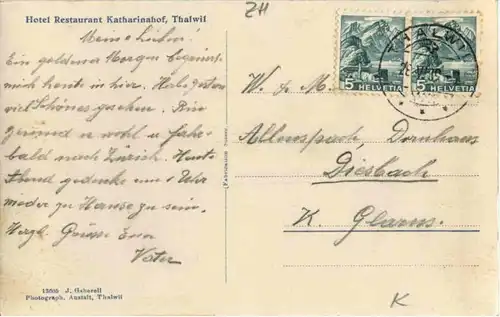 ZH
Hotel Restaurant Katharinahof, Thalwil
Meine Lieben!
Ein goldener Morgen begrüsst
mich heute in hier. Habe gestern
viel Schönes gesehen. Bin
gesund u. wohl u. fahre
bald nach Zürich. Heute
Abend gedenke um Uhr
wieder zu Hause zu sein.
Herzl. Grüsse Euer
Vater
13605 J. Gaberell
Photograph. Anstalt, Thalwil
THALWIL
5 HELVETIA
5 HELVETIA
W. & M.
Allenspach, Dornhaus
Diesbach
K. Glarus.
K